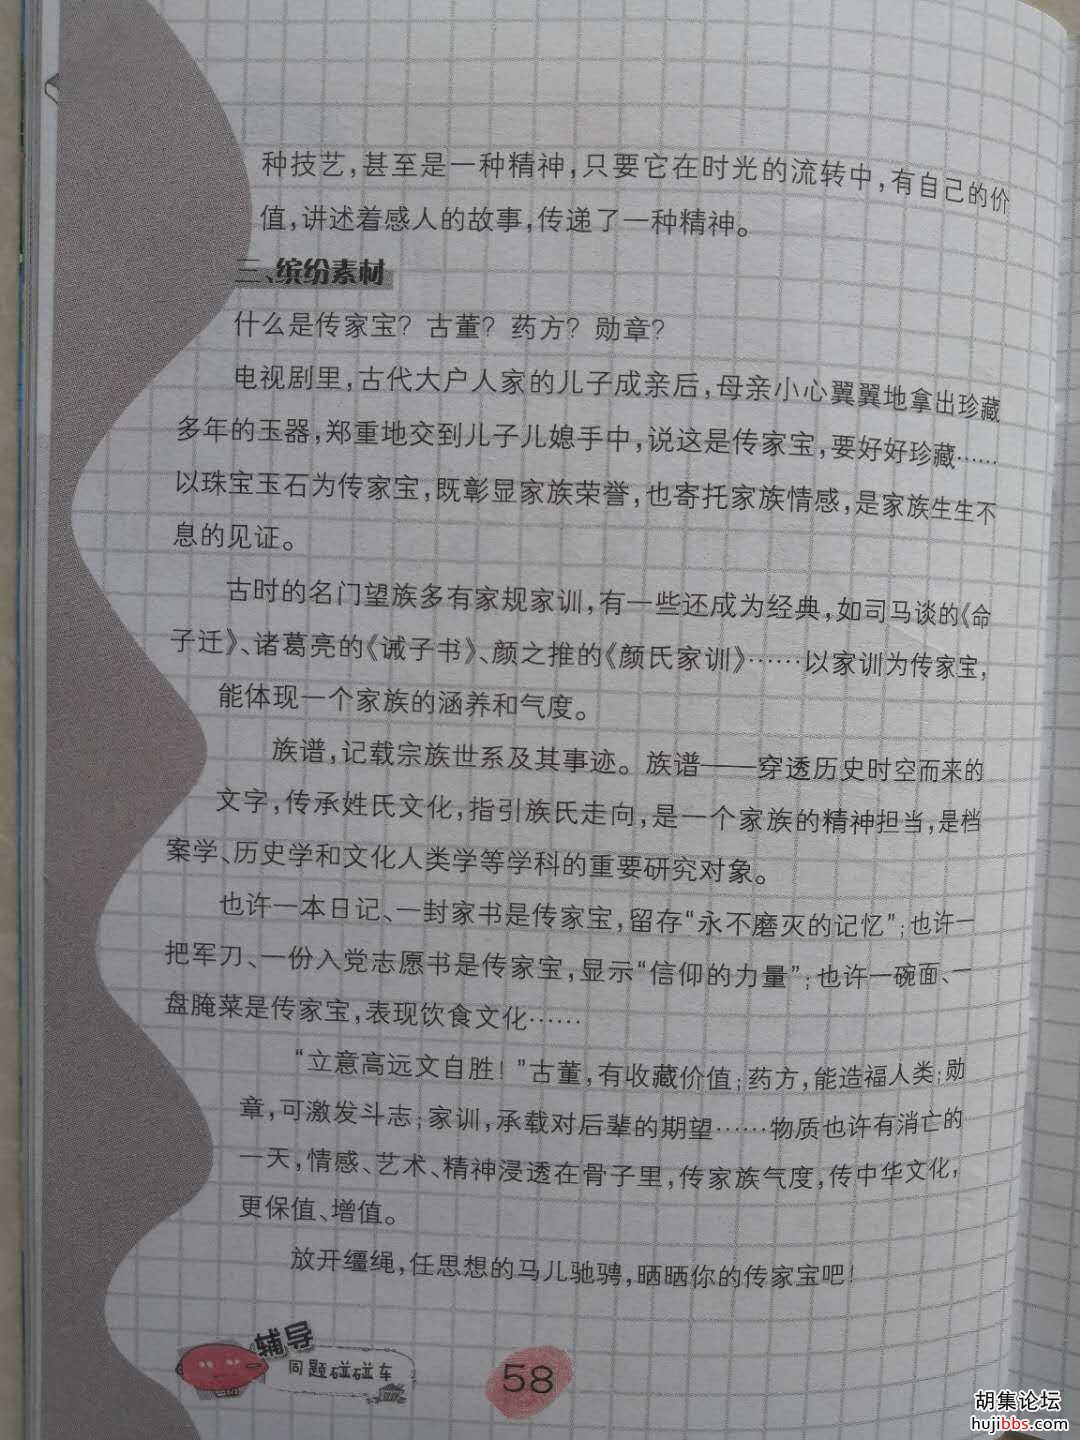 种技艺，甚至是一种精神，只要它在时光的流转中，有自己的价
值，讲述着感人的故事，传递了一种精神。
三、缤纷素材
什么是传家宝？古董？药方？勋章？
电视剧里，古代大户人家的儿子成亲后，母亲小心翼翼地拿出珍藏
多年的玉器，郑重地交到儿子儿媳手中，说这是传家宝，要好好珍藏……
以珠宝玉石为传家宝，既彰显家族荣誉，也寄托家族情感，是家族生生不
息的见证。
古时的名门望族多有家规家训，有一些还成为经典，如司马谈的《命
子迁》、诸葛亮的《诫子书》、颜之推的《颜氏家训》……以家训为传家宝，
能体现一个家族的涵养和气度。
族谱，记载宗族世系及其事迹。族谱——穿透历史时空而来的
文字，传承姓氏文化，指引族氏走向，是一个家族的精神担当，是档
案学、历史学和文化人类学等学科的重要研究对象。
也许一本日记、一封家书是传家宝，留存“永不磨灭的记忆”；也许一
把军刀、一份入党志愿书是传家宝，显示“信仰的力量”；也许一碗面、一
盘腌菜是传家宝，表现饮食文化……
“立意高远文自胜！”古董，有收藏价值；药方，能造福人类；勋
章，可激发斗志；家训，承载对后辈的期望……物质也许有消亡的
一天，情感、艺术、精神浸透在骨子里，传家族气度，传中华文化，
更保值、增值。
放开缰绳，任思想的马儿驰骋，晒晒你的传家宝吧！
辅导
同题碰碰车
58
胡集论坛
hujibbs.com